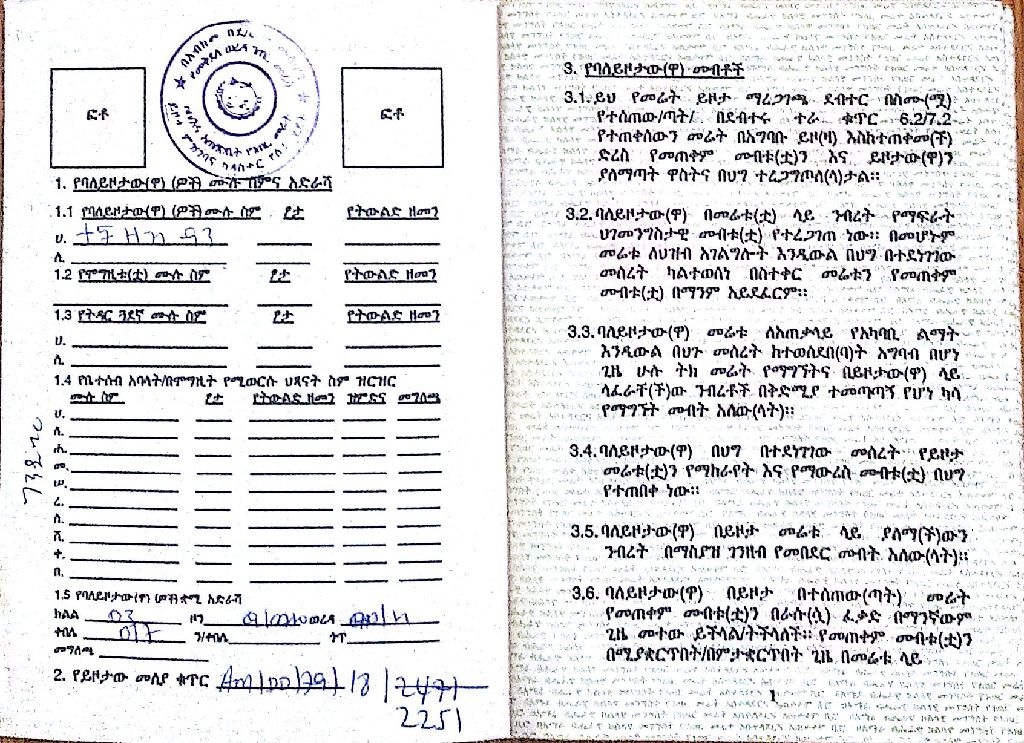 ፎቶ
ፎቶ
1. የባለይዞታው(ዋ) (ዎች) ሙሉ ስምና አድራሻ
1.1 የባለይዞታው(ዋ) (ዎች) ሙሉ ስም ፆታ የትውልድ ዘመን
ሀ.
ለ.
1.2 የሞግዚቱ(ቷ) ሙሉ ስም ፆታ የትውልድ ዘመን
1.3 የትዳር ጓደኛ ሙሉ ስም ፆታ የትውልድ ዘመን
ሀ.
ለ.
1.4 የቤተሰብ አባላት/በሞግዚት የሚወርሱ ህጻናት ስም ዝርዝር
ሙሉ ስም ፆታ የትውልድ ዘመን ዝምድና መግለጫ
ሀ.
ለ.
ሐ.
መ.
ሠ.
ረ.
ሰ.
ሸ.
ቀ.
በ.
1.5 የባለይዞታው(ዋ) (ዎች) ቋሚ አድራሻ
ክልል 03 ዞን ወረዳ
ቀበሌ 017 ን/ቀበሌ ጎጥ
መግለጫ
2. የይዞታው መለያ ቁጥር AM/DD/79/18/2471
2251
3. የባለይዞታው(ዋ) መብቶች
3.1. ይህ የመሬት ይዞታ ማረጋገጫ ደብተር በስሙ(ሟ)
የተሰጠው/ጣት/ በደብተሩ ተራ ቁጥር 6.2/7.2
የተጠቀሰውን መሬት በአግባቡ ይዞ(ዛ) እስከተጠቀመ(ች)
ድረስ የመጠቀም መብቱ(ቷ)ን እና ይዞታው(ዋ)ን
ያለማጣት ዋስትና በህግ ተረጋግጦለ(ላ)ታል።
3.2. ባለይዞታው(ዋ) በመሬቱ(ቷ) ላይ ንብረት የማፍራት
ህገመንግስታዊ መብቱ(ቷ) የተረጋገጠ ነው። በመሆኑም
መሬቱ ለህዝብ አገልግሎት እንዲውል በህግ በተደነገገው
መሰረት ካልተወሰነ በስተቀር መሬቱን የመጠቀም
መብቱ(ቷ) በማንም አይደፈርም።
3.3. ባለይዞታው(ዋ) መሬቱ ለአጠቃላይ የአካባቢ ልማት
እንዲውል በህጉ መሰረት ከተወሰደበ(ባ)ት አግባብ በሆነ
ጊዜ ሁሉ ትክ መሬት የማግኘትና በይዞታው(ዋ) ላይ
ላፈራቸ(ች)ው ንብረቶች በቅድሚያ ተመጣጣኝ የሆነ ካሳ
የማግኘት መብት አለው(ላት)።
3.4. ባለይዞታው(ዋ) በህግ በተደነገገው መሰረት የይዞታ
መሬቱ(ቷ)ን የማከራየት እና የማውረስ መብቱ(ቷ) በህግ
የተጠበቀ ነው።
3.5. ባለይዞታው(ዋ) በይዞታ መሬቱ ላይ ያለማ(ች)ውን
ንብረት በማስያዝ ገንዘብ የመበደር መብት አለው(ላት)።
3.6. ባለይዞታው(ዋ) በይዞታ በተሰጠው(ጣት) መሬት
የመጠቀም መብቱ(ቷ)ን በራሱ(ሷ) ፈቃድ በማንኛውም
ጊዜ መተው ይችላል/ትችላለች። የመጠቀም መብቱ(ቷ)ን
በሚያቋርጥበት/በምታቋርጥበት ጊዜ በመሬቱ ላይ
1